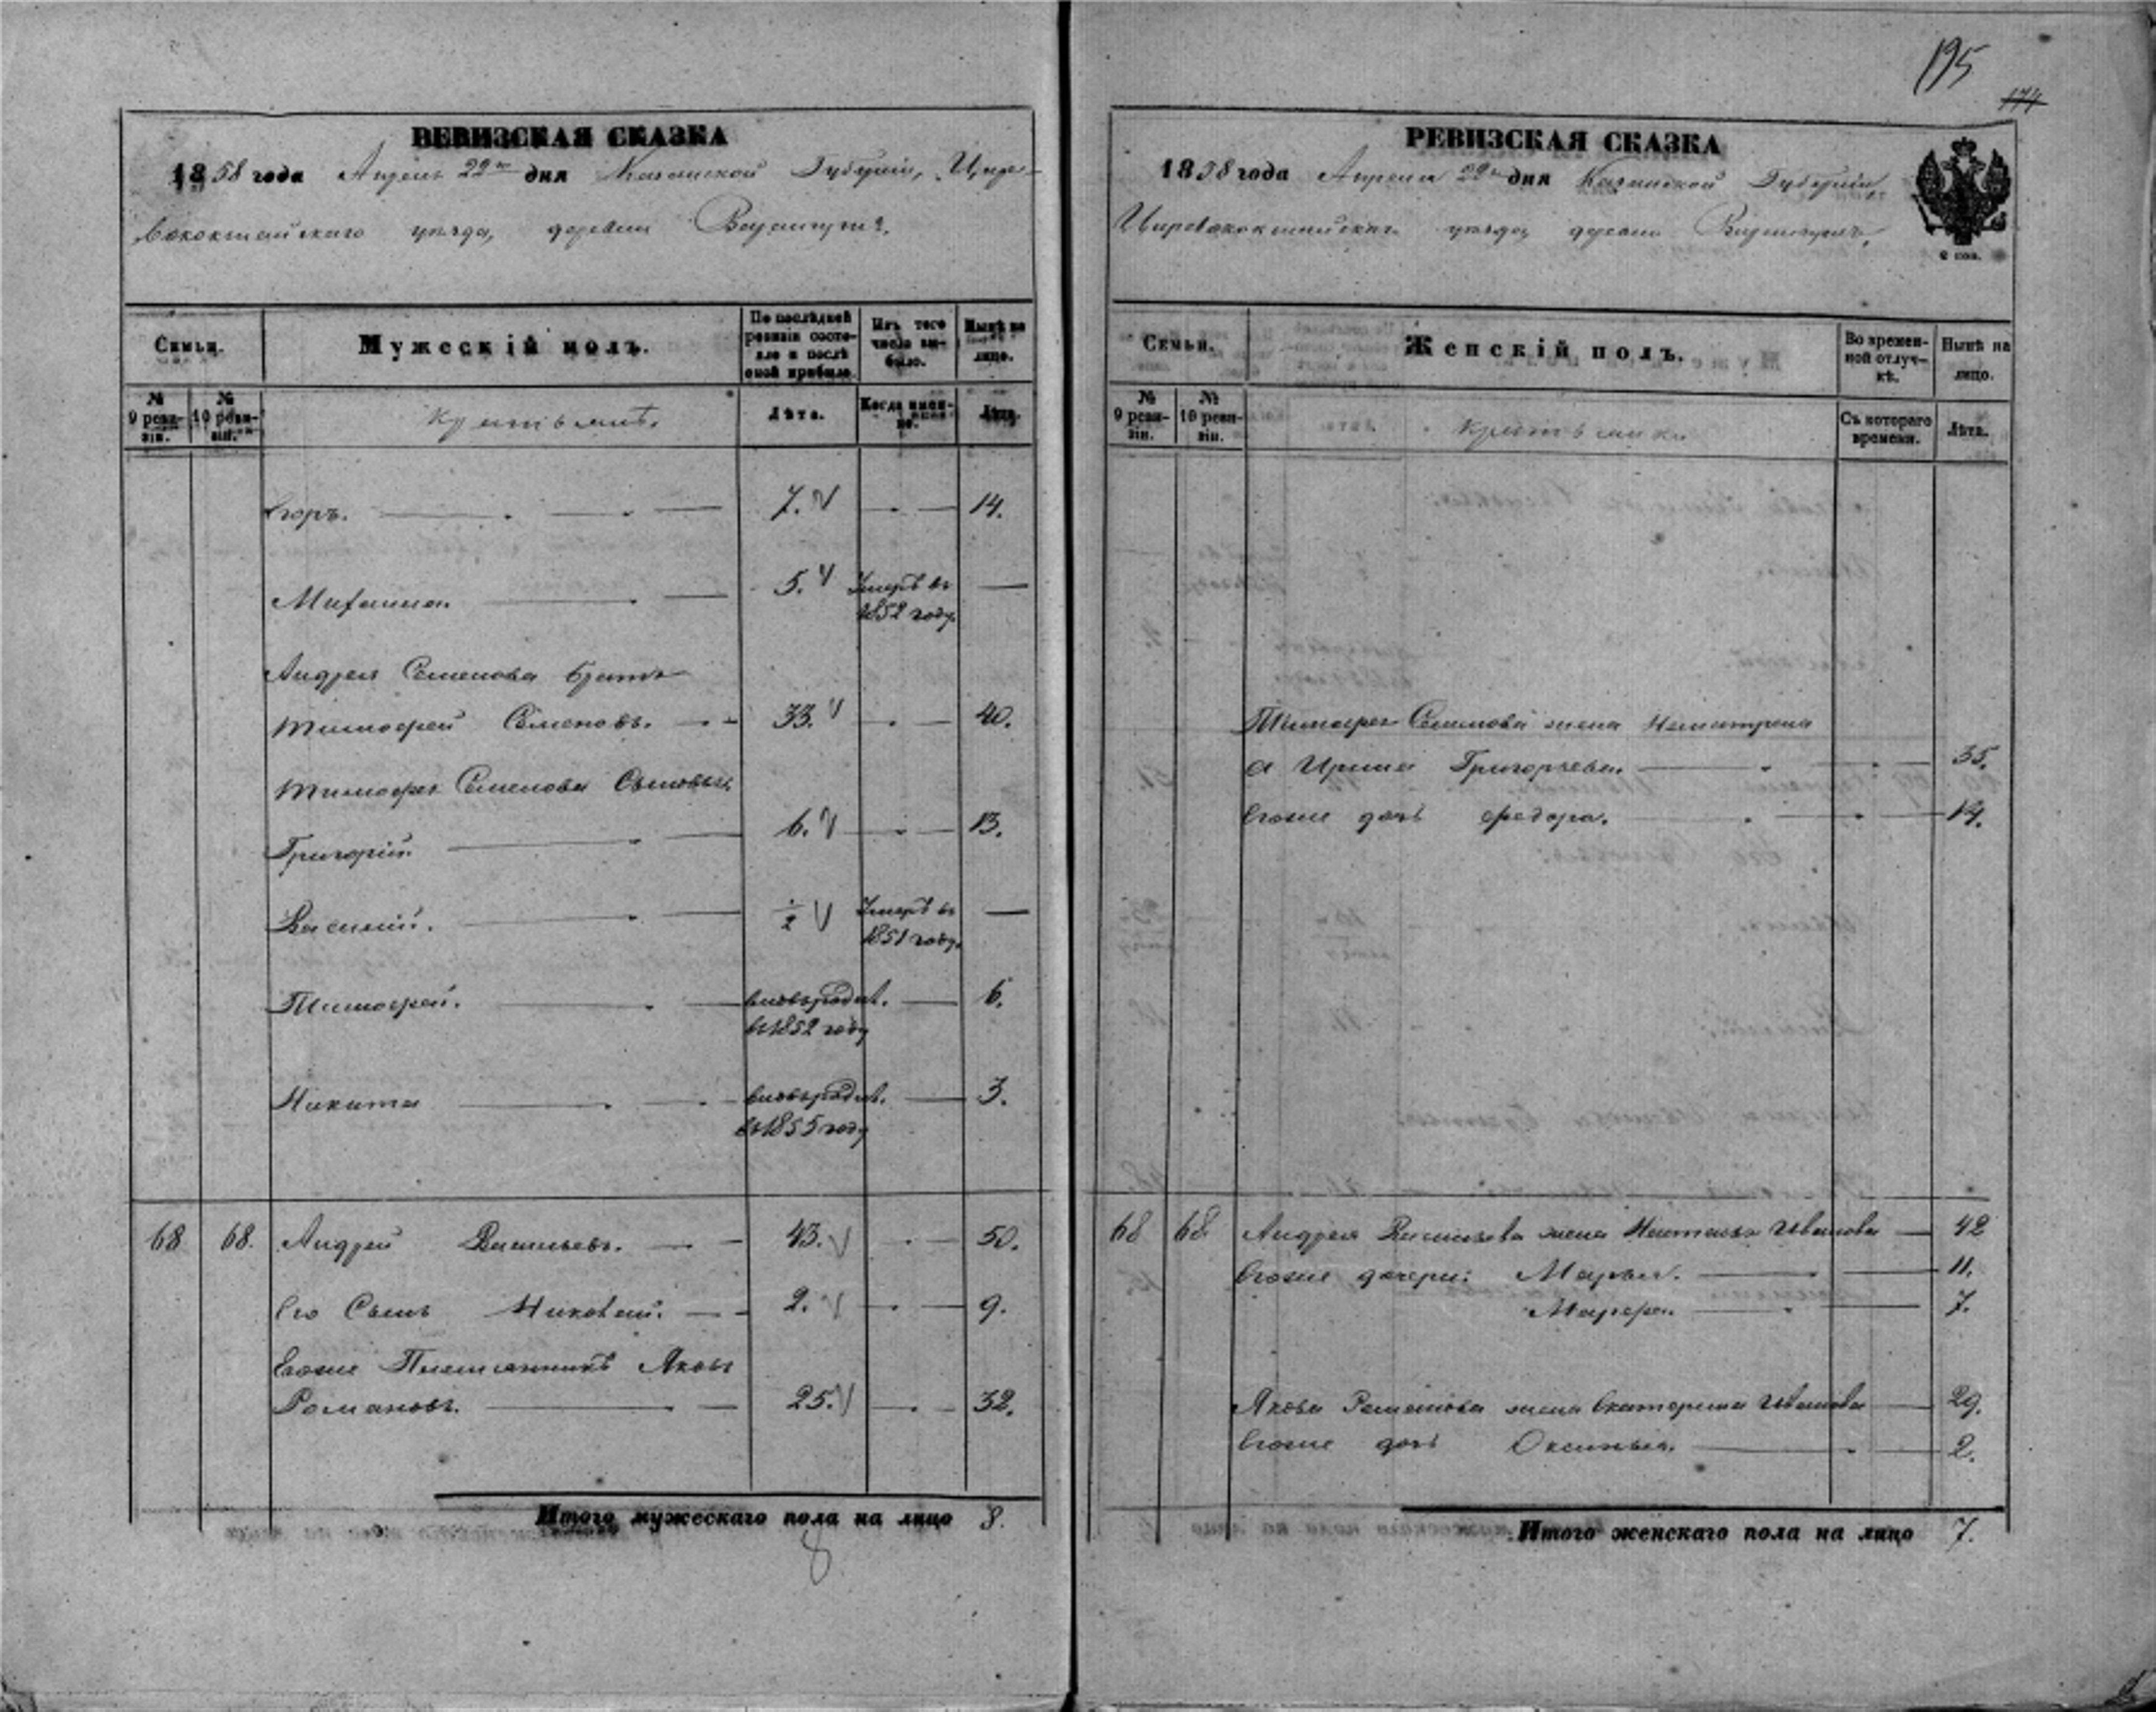 195
174
РЕВИЗСКАЯ СКАЗКА
1858 года Апреля 22го дня Казанской Губерніи, Царе-
вококшайскаго уѣзда, деревни
Семьи.
Мужескій полъ.
По послѣдней ревизіи состо-
яло и послѣ
оной прибыло.
Изъ того
числа вы-
было.
Нынѣ на
лицо.
№
9 реви-
зіи.
№
10 реви-
зіи.
Крестьянѣ.
Лѣта.
Когда имен-
но.
Лѣта.
Егоръ. 7. 14.
Михаила. 5. Умеръ въ
1852 году.
Андрея Семенова братъ
Тимофей Семеновъ. 33. 40.
Тимофея Семенова Сыновья
Григорій. 6. 13.
Василій. 1/2 Умеръ въ
1851 году.
Тимофей. вновьродил. 6.
въ 1852 году
Никита вновьродил. 3.
въ 1855 году
68 68. Андрей Васильевъ. 43. 50.
Его Сынъ Николай. 2. 9.
Егоже Племянникъ Яковъ
Романовъ. 25. 32.
Итого мужескаго пола на лицо 8.
8
РЕВИЗСКАЯ СКАЗКА
1858 года Апреля 22го дня Казанской Губерніи,
Царевококшайскаго уѣзда, деревни
2 коп.
Семьи.
Женскій полъ.
Во времен-
ной отлуч-
кѣ.
Нынѣ на
лицо.
№
9 реви-
зіи.
№
10 реви-
зіи.
Крестьянки
Съ котораго
времени.
Лѣта.
Тимофея Семенова жена
а Ирина Григорьева. 35.
Егоже дочь Федора. 14.
68 68. Андрея Васильева жена Настасья Иванова 42
Егоже дочери: Марья. 11.
Марфа. 7.
Якова Романова жена Екатерина Иванова 29.
Егоже дочь Оксинья. 2.
Итого женскаго пола на лицо 7.